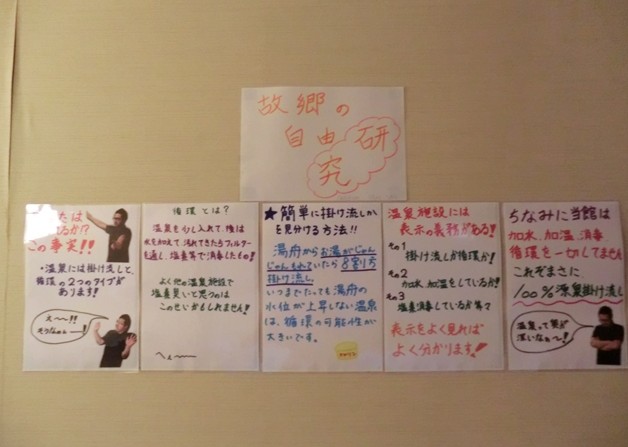 故郷の
自由研
究
たは
るか!?
この事実!!
・温泉には掛け流しと、
循環の2つのタイプが
あります!
え〜〜!!
そうなの〜!
循環とは?
温泉を少し入れて、後は
水を加えて、溢れてきたらフィルター
を通し、塩素等で消毒したもの!
よく他の温泉施設で
塩素臭いと思うのは
このせいかもしれません!
へぇ〜〜
★簡単に掛け流しか
を見分ける方法!!
湯舟からお湯がじゃん
じゃんもれていたら8割り方
掛け流し
いつまでたっても湯舟の
水位が上昇しない温泉
は、循環の可能性が
大きいです。
温泉施設には
表示の義務がある!
その1
掛け流しか循環か!
その2
加水、加温をしているか!
その3
塩素消毒しているか等々
表示をよく見れば
よく分かります!
ちなみに当館は
加水、加温、消毒
循環を一切してません
これぞまさに、
100%源泉掛け流し
温泉って奥が
深いなぁ〜!